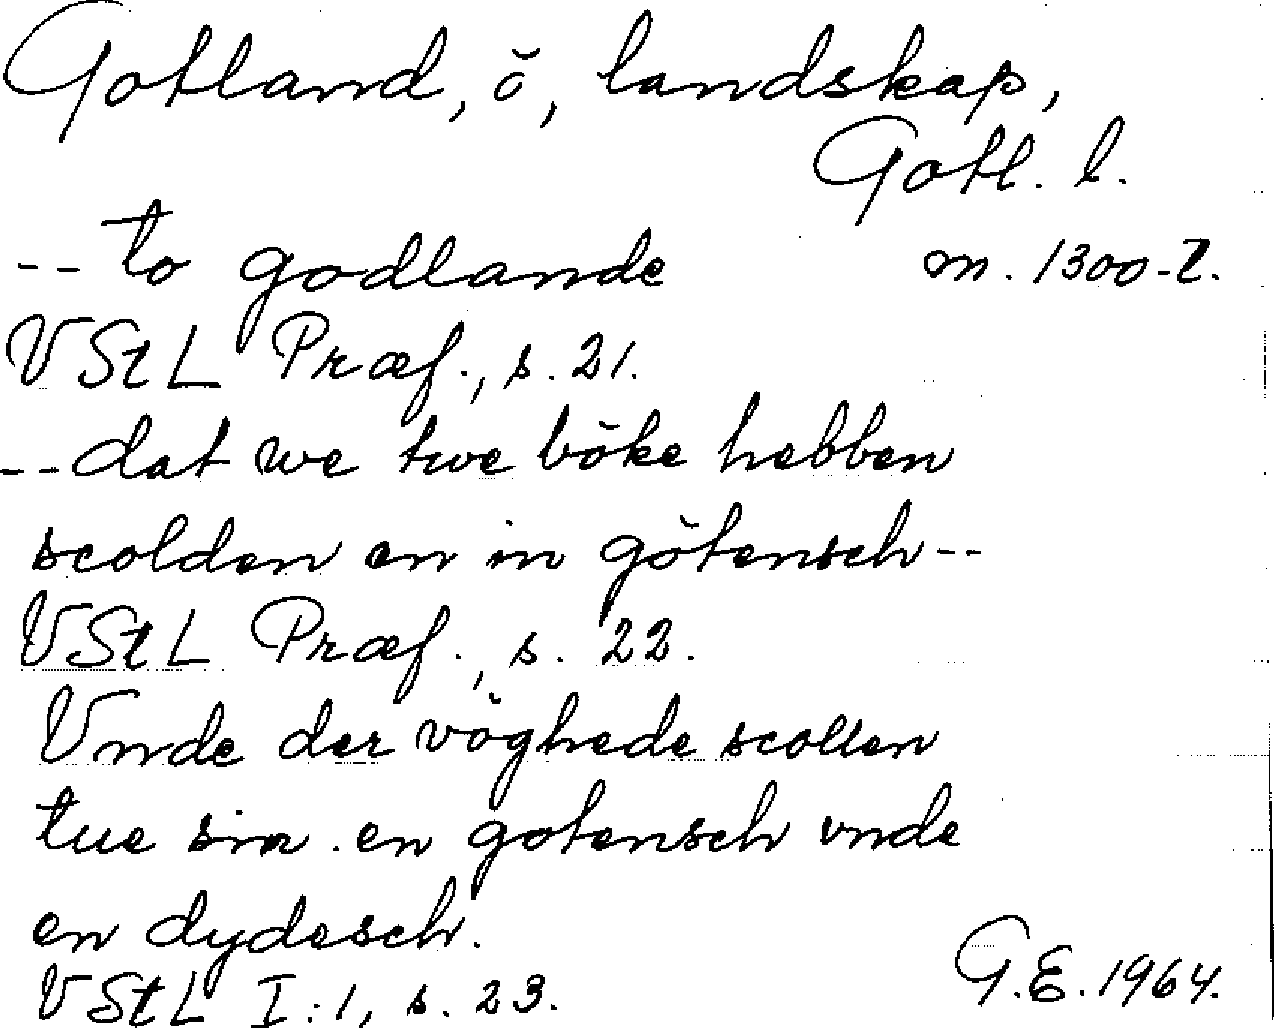 Gotland, ö, landskap,
Gotl. l.
-- to godlande m. 1300-t.
VStL Præf., s. 21.
-- dat we twe böke hebben
scolden en in götensch --
VStL Præf., s. 22.
Vnde der vöghede scollen
tue sin . en gotensch vnde
en dydesch.
VStL I:1, s. 23. G.E. 1964.